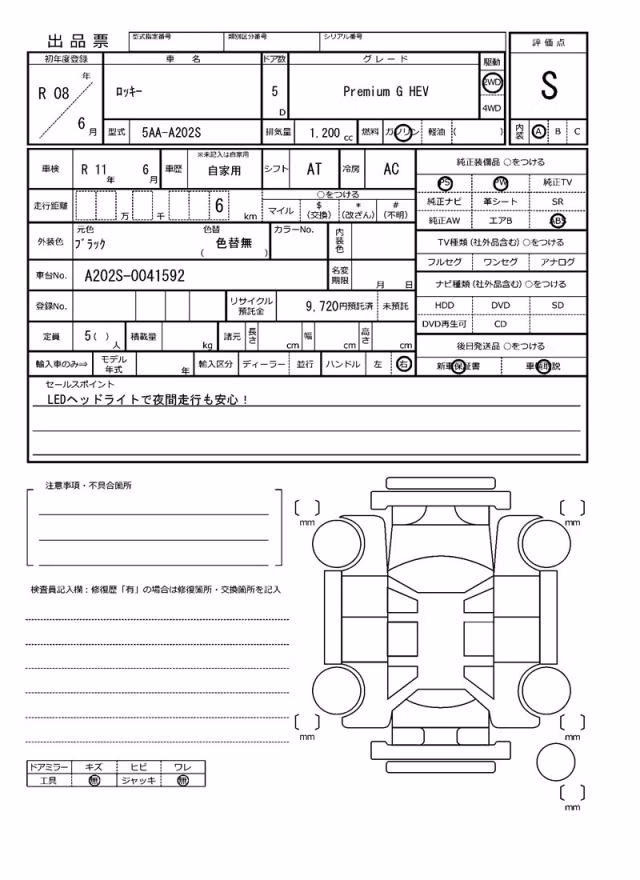 出品票 型式指定番号 類別区分番号 シリアル番号 評価点
初年度登録 車名 ドア数 グレード 駆動 S
R 08 年 ロッキー 5 D Premium G HEV 2WD
4WD
6 月 型式 5AA-A202S 排気量 1.200 cc 燃料 ガソリン 軽油 ( ) 内装 A B C
車検 R 11 年 6 月 車歴 ※未記入は自家用 自家用 シフト AT 冷房 AC 純正装備品 ○をつける
PS PW 純正TV
走行距離 万 千 6 km ○をつける 純正ナビ 革シート SR
マイル $ (交換) * (改ざん) # (不明) 純正AW エアB ABS
外装色 元色 ブラック 色替 ( 色替無 ) カラーNo. 内装色 TV種類 (社外品含む) ○をつける
フルセグ ワンセグ アナログ
車台No. A202S-0041592 名変期限 月 日 ナビ種類 (社外品含む) ○をつける
登録No. リサイクル預託金 9,720円預託済 未預託 HDD DVD SD
DVD再生可 CD
定員 5 ( ) 人 積載量 kg 諸元 長さ cm 幅 cm 高さ cm 後日発送品 ○をつける
輸入車のみ⇒ モデル年式 年 輸入区分 ディーラー 並行 ハンドル 左 右 新車保証書 車輌取説
セールスポイント
LEDヘッドライトで夜間走行も安心！
注意事項・不具合箇所
mm mm
検査員記入欄：修復歴「有」の場合は修復箇所・交換箇所を記入
mm mm
ドアミラー キズ ヒビ ワレ
工具 無 ジャッキ 無
mm